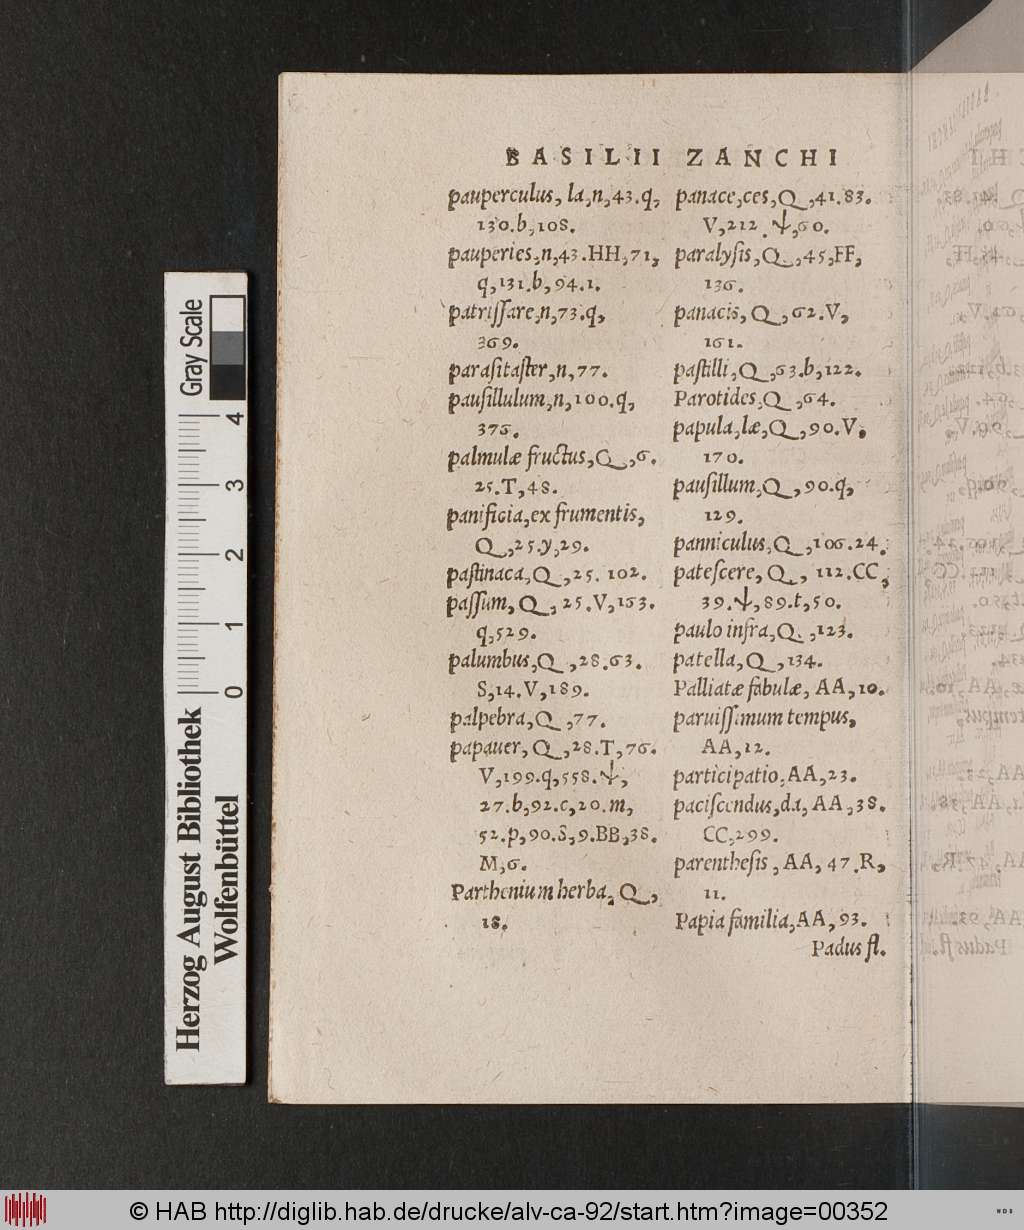 BASILII ZANCHI
pauperculus, la, n, 43. q,
130. b, 108.
pauperies, n, 43. HH, 71,
q, 131. b, 94. 1.
patriſſare, n, 73. q,
369.
paraſitaſter, n, 77.
pauſillulum, n, 100. q,
376.
palmulæ fructus, Q, 6.
25. T, 48.
panificia, ex frumentis,
Q, 25. y, 29.
paſtinaca, Q, 25. 102.
paſſum, Q, 25. V, 163.
q, 529.
palumbus, Q, 28. 63.
S, 14. V, 189.
palpebra, Q, 77.
papauer, Q, 28. T, 76.
V, 199. q, 558. ψ,
27. b, 92. c, 20. m,
52. p, 90. S, 9. BB, 38.
M, 6.
Parthenium herba, Q,
18.
panace, ces, Q, 41. 83.
V, 212. ψ, 60.
paralyſis, Q, 45, FF,
136.
panacis, Q, 62. V,
161.
paſtilli, Q, 63. b, 122.
Parotides, Q, 64.
papula, læ, Q, 90. V,
170.
pauſillum, Q, 90. q,
129.
panniculus, Q, 106. 24.
pateſcere, Q, 112. CC,
39. ψ, 89. t, 50.
paulo infra, Q, 123.
patella, Q, 134.
Palliatæ fabulæ, AA, 10.
paruiſſimum tempus,
AA, 12.
participatio, AA, 23.
paciſcendus, da, AA, 38.
CC, 299.
parentheſis, AA, 47. R,
11.
Papia familia, AA, 93.
Padus fl.
Gray Scale
0 1 2 3 4
Herzog August Bibliothek
Wolfenbüttel
© HAB http://diglib.hab.de/drucke/alv-ca-92/start.htm?image=00352